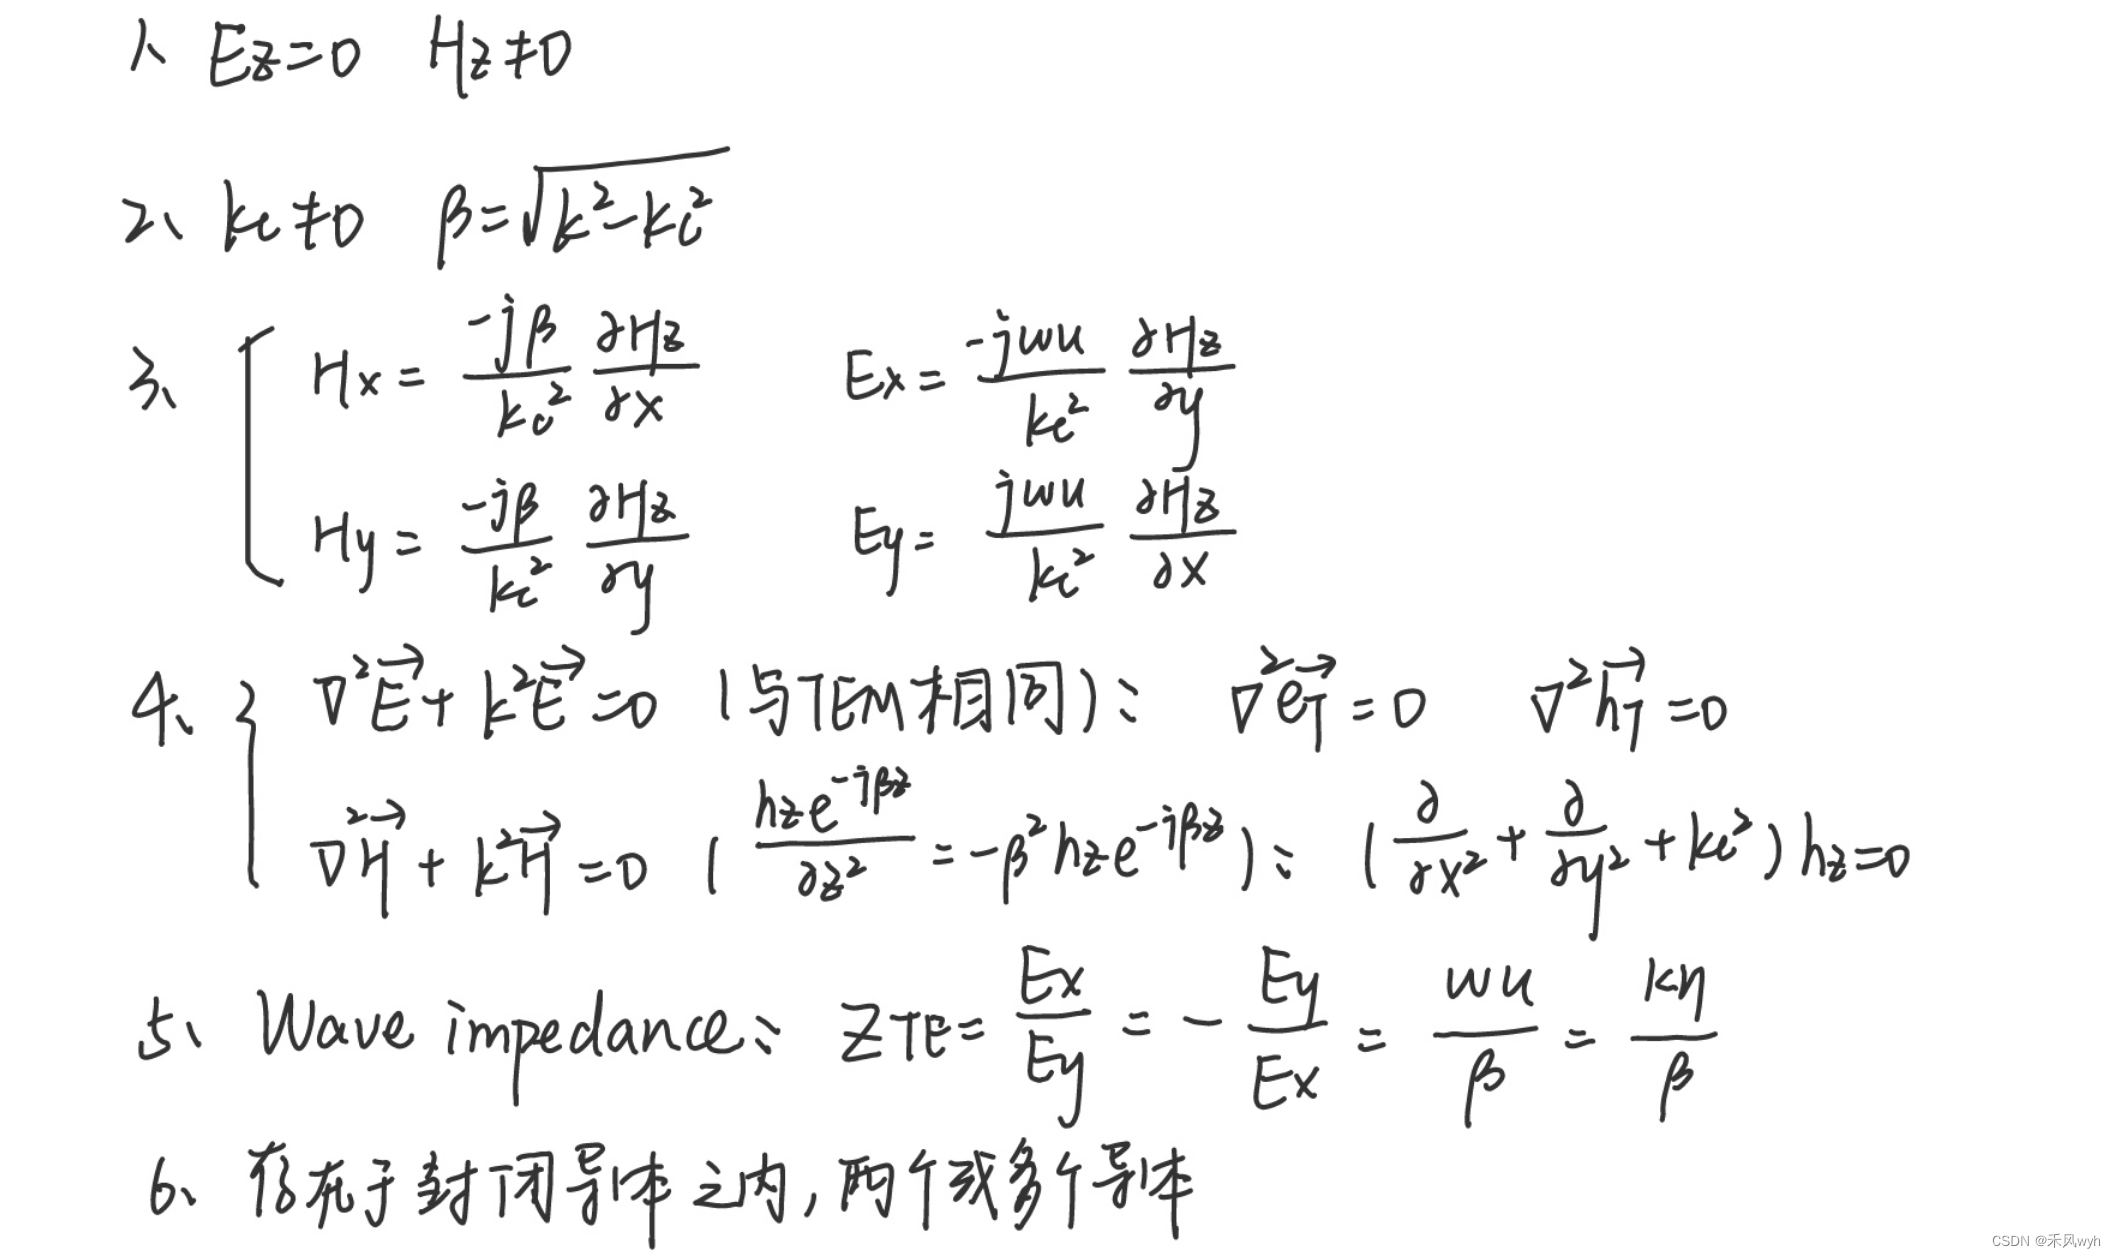 1、 Ez=0 Hz≠0
2、 kc≠0 β=√(k²-kc²)
3、 { Hx = -jβ/kc² ∂Hz/∂x Ex = -jwu/kc² ∂Hz/∂y
Hy = -jβ/kc² ∂Hz/∂y Ey = jwu/kc² ∂Hz/∂x
4、 { ∇²E⃗ + k²E⃗ = 0 (与TEM相同): ∇²e⃗T = 0 ∇²h⃗T = 0
∇²H⃗ + k²H⃗ = 0 ( hz e^-jβz / ∂z² = -β² hz e^-jβz ): ( ∂/∂x² + ∂/∂y² + kc² ) hz = 0
5、 Wave impedance: ZTE = Ex/Ey = - Ey/Ex = wu/β = kη/β
6、 存在于封闭导体之内,两个或多个导体
CSDN @禾风wyh